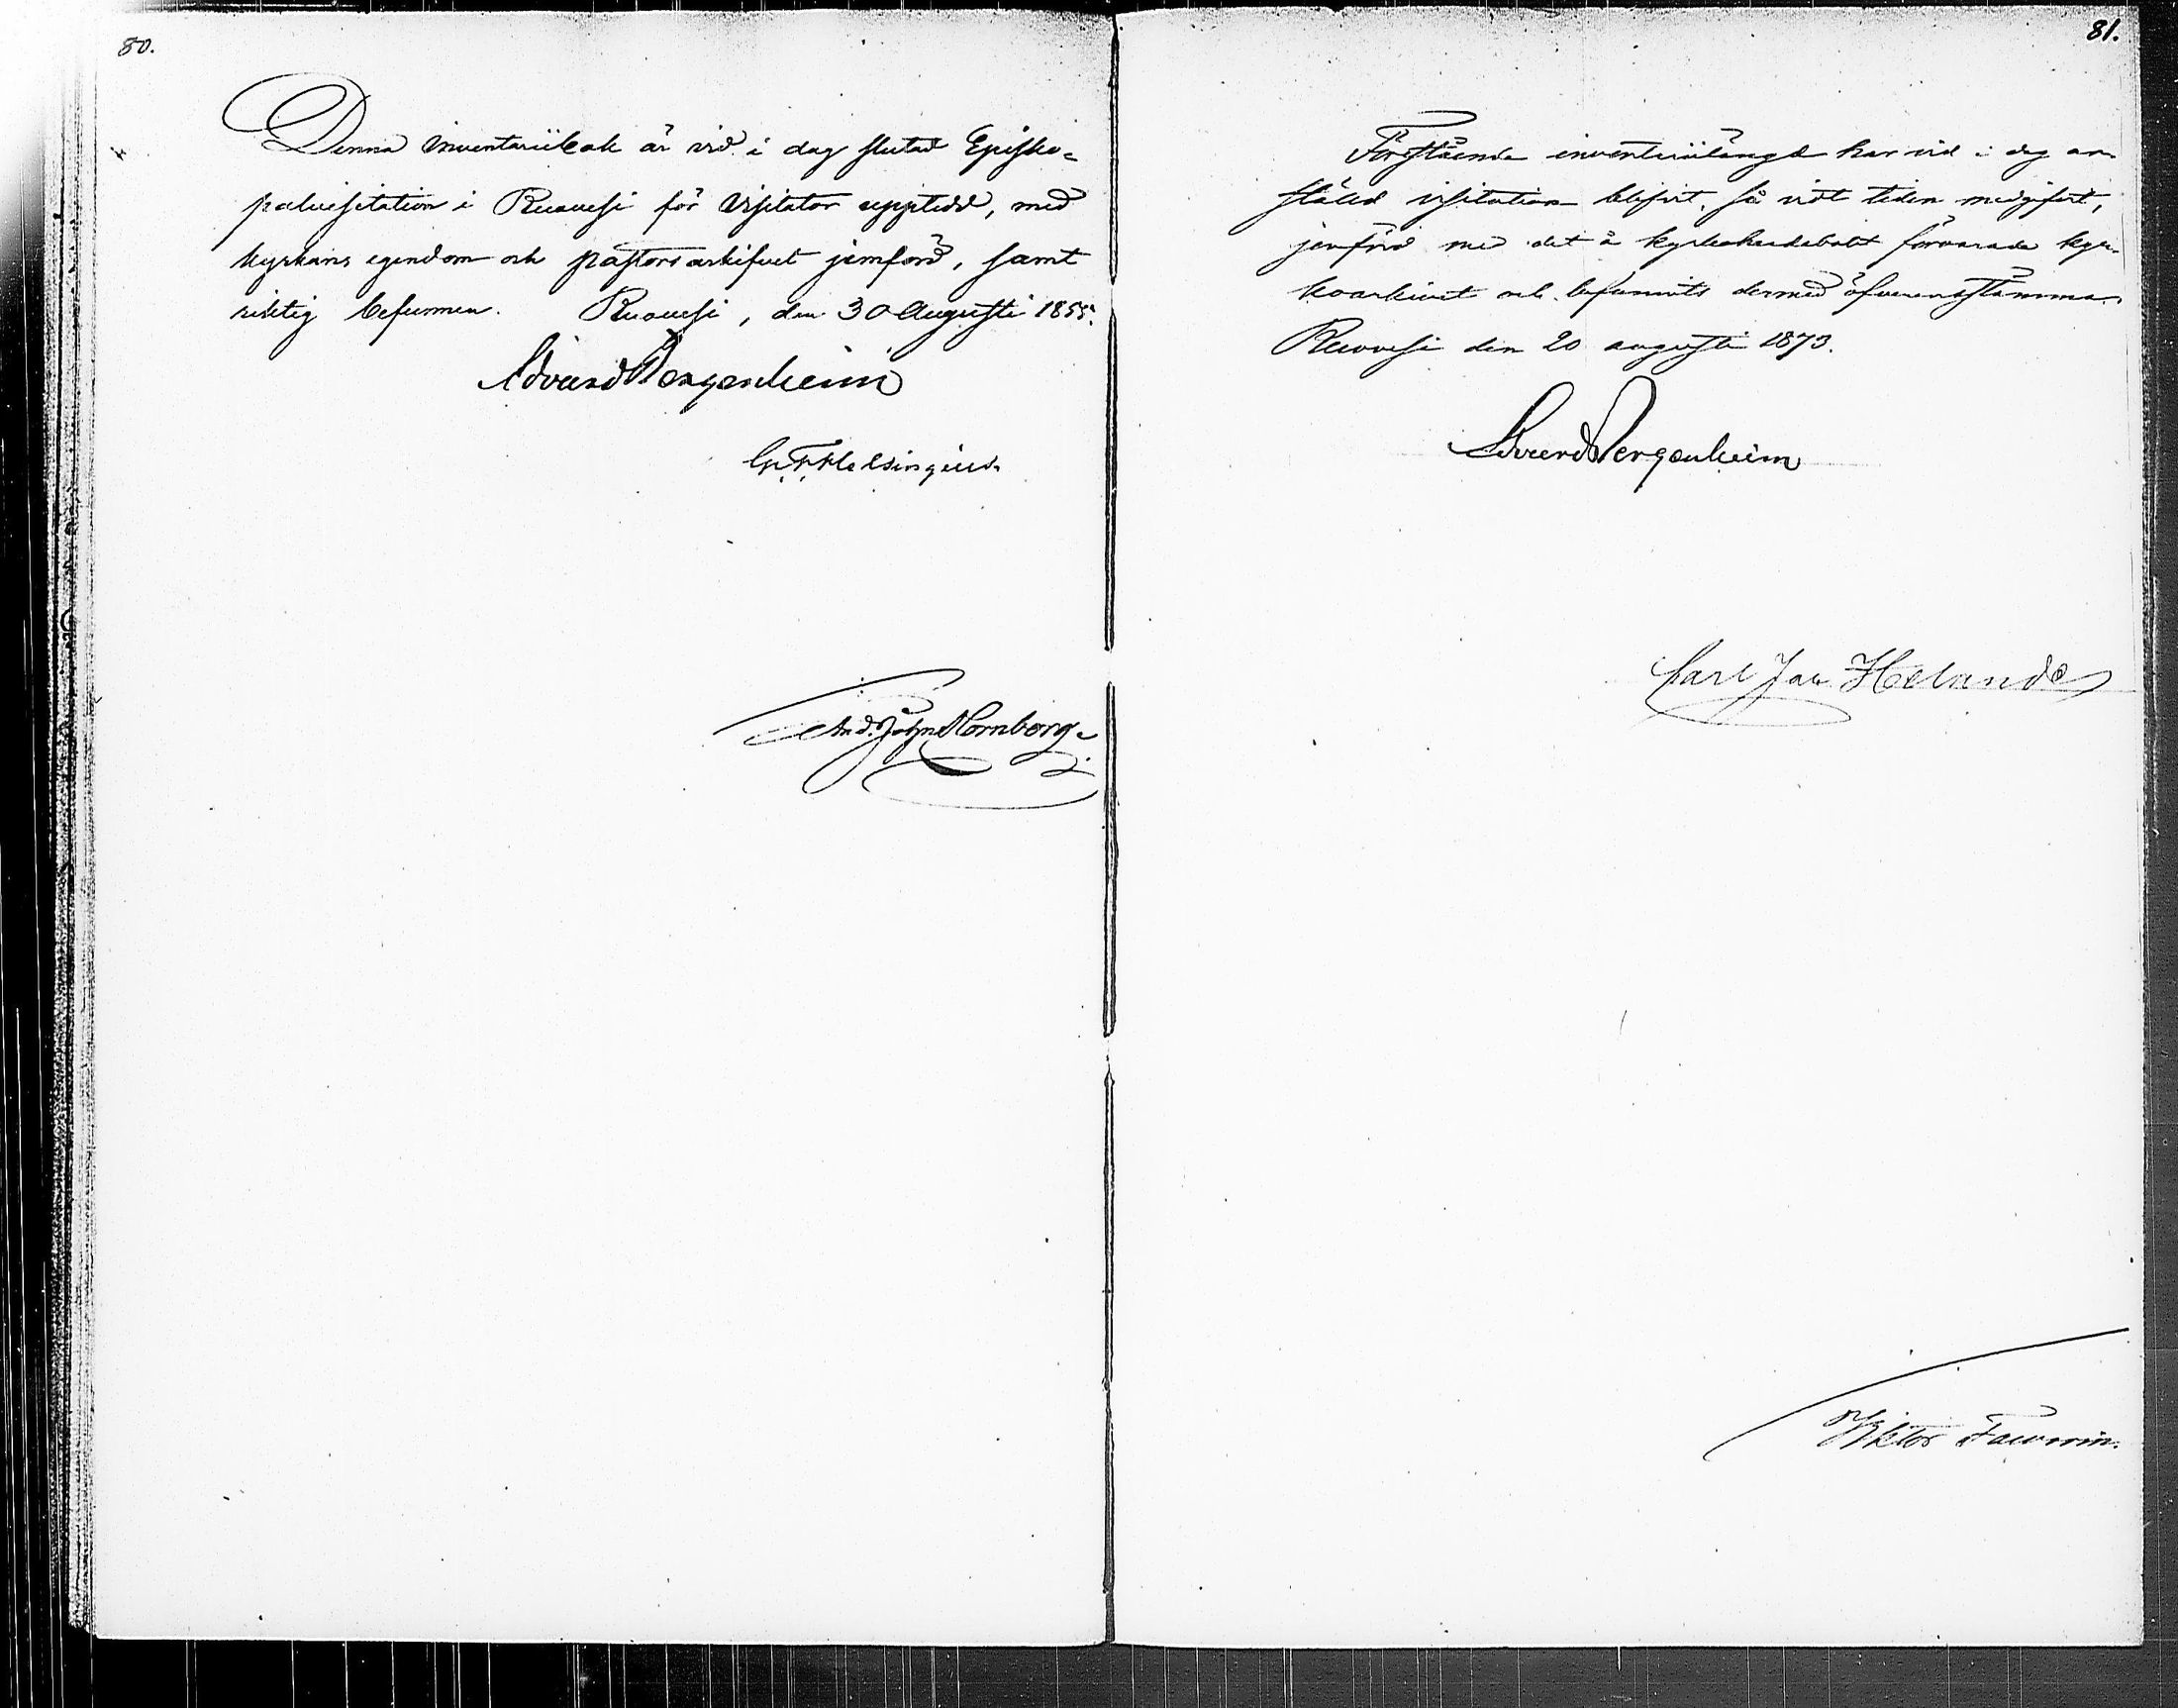 80.
Denna inventariibok är vid i dag slutad Episko=
palvisitation i Ruovesi för Visitator upptedd, med
kyrkans egendom och pastorsarkifvet jemförd, samt
riktig befunnen. Ruovesi, den 30 Augusti 1855.
Edvard Bergenheim
Helsingius
And. Joh. Hornborg
81.
Förestående inventariilängd har vid i dag an-
stäld visitation blifvit, så vidt tiden medgifvit,
jemförd med det å kyrkoherdebolet förvarade kyr-
koarkivet och befunnits dermed öfverensstämma.
Ruovesi den 20 augusti 1873.
Edvard Bergenheim
Carl Jac Helander
Viktor